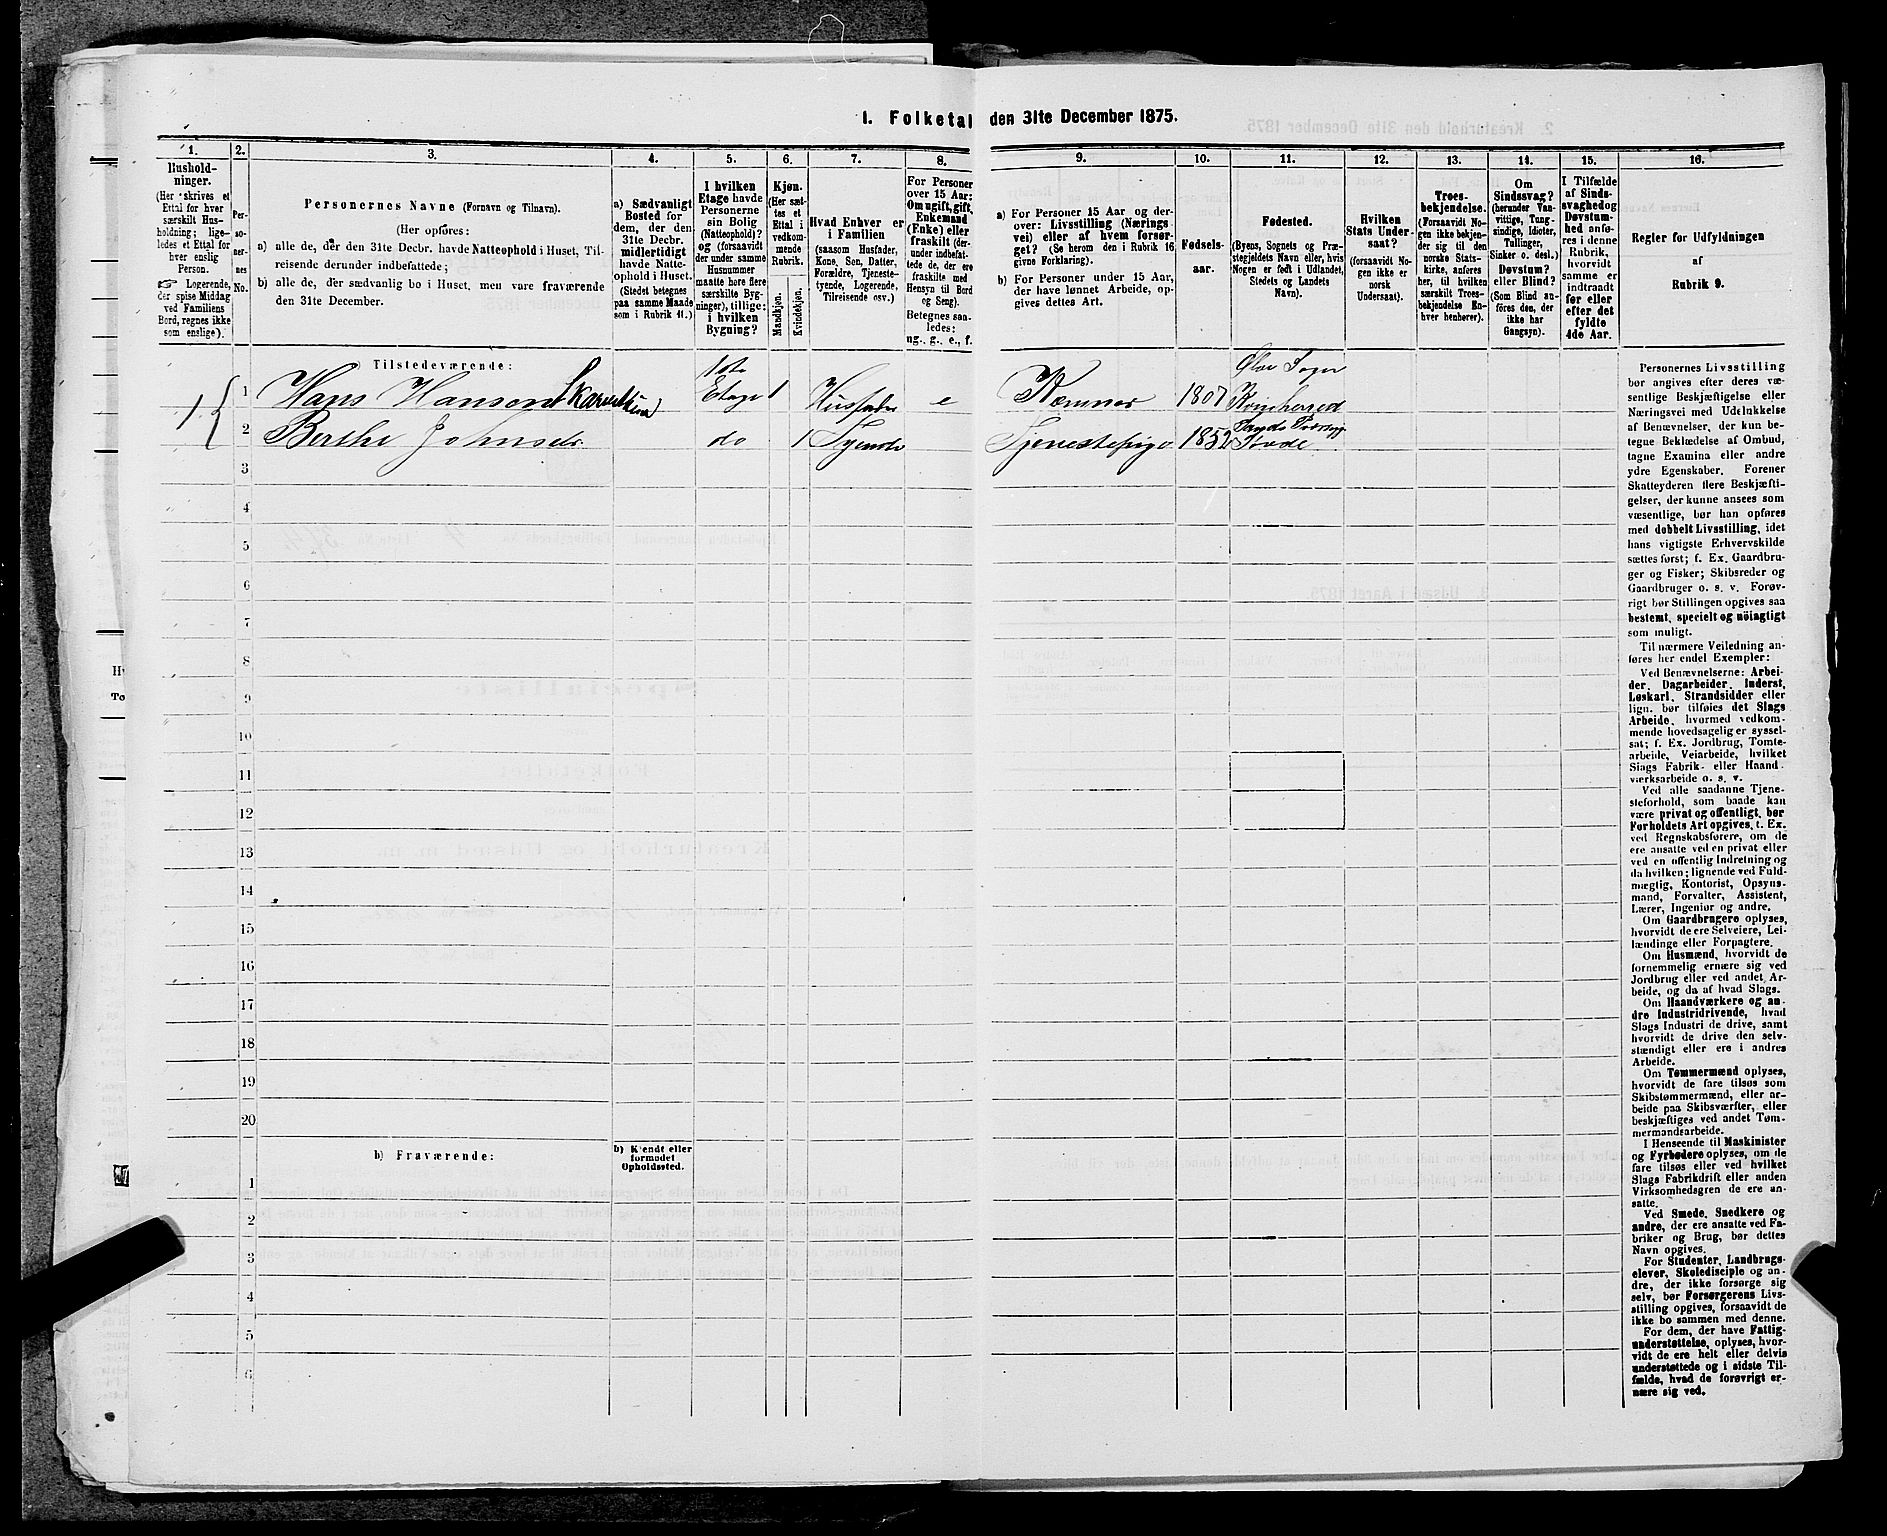 1. Folketal den 31te December 1875.
1.
Hushold-
ninger.
(Her skrives et
Ettal for hver
særskilt Hus-
holdning; lige-
ledes et Ettal for
hver enslig
Person.
☞ Logerende,
der spise Middag
ved Familiens
Bord, regnes ikke
som enslige).
2.
Per-
so-
ner-
nes
No.
3.
Personernes Navne (Fornavn og Tilnavn).
(Her opføres:
a) alle de, der den 31te Decbr. havde Natteophold i Huset, Til-
reisende derunder indbefattede;
b) alle de, der sædvanlig bo i Huset, men vare fraværende
den 31te December.
4.
a) Sædvanligt
Bosted for
dem, der den
31te Decbr.
midlertidigt
havde Natte-
ophold i Huset.
(Stedet betegnes
paa samme Maade
som i Rubrik 11.)
5.
I hvilken
Etage havde
Personerne
sin Bolig
(Natteophold)?
og (forsaavidt
der under samme
Husnummer
maatte høre flere
særskilte Byg-
ninger), tillige:
i hvilken
Bygning?
6.
Kjøn.
(Her sæt-
tes et
Ettal i
vedkom-
mende
Rubrik.
Mandkjøn.
Kvindekjøn.
7.
Hvad Enhver er
i Familien
(saasom Husfader,
Kone, Søn, Datter,
Forældre, Tjeneste-
tyende, Logerende,
Tilreisende osv.)
8.
For Personer
over 15 Aar:
Om ugift, gift,
Enkemand
(Enke) eller
fraskilt (der-
under indbefat-
tede de, der ere
fraskilte med
Hensyn til Bord
og Seng).
Betegnes saa-
ledes:
ug., g., e., f.
9.
a) For Personer 15 Aar og der-
over: Livsstilling (Nærings-
vei) eller af hvem forsør-
get? (Se herom den i Rubrik 16
givne Forklaring).
b) For Personer under 15 Aar,
der have lønnet Arbeide, op-
gives dettes Art.
10.
Fødsels-
aar.
11.
Fødested.
(Byens, Sognets og Præ-
stegjeldets Navn eller, hvis
Nogen er født i Udlandet,
Stedets og Landets
Navn).
12.
Hvilken
Stats Under-
saat?
(forsaavidt No-
gen ikke er
norsk
Undersaat).
13.
Troes-
bekjendelse.
(Forsaavidt No-
gen ikke bekjen-
der sig til den
norske Stats-
kirke, anføres
her, til hvilken
særskilt Troes-
bekjendelse En-
hver henhører).
14.
Om
Sindssvag?
(herunder Van-
vittige, Tung-
sindige, Idioter,
Tullinger,
Sinker o. desl.)
Døvstum?
eller Blind?
(Som Blind an-
føres den, der
ikke har
Gangsyn).
15.
I Tilfælde
af Sinds-
svaghed og
Døvstum-
hed anfø-
res i denne
Rubrik,
hvorvidt
samme er
indtraadt
før eller
efter det
fyldte
4de Aar.
16.
Regler for Udfyldningen
af
Rubrik 9.
Tilstedeværende:
1 Hans Hansen 1ste Etage 1 Husfader e Kæmner 1807
2 Berthe Johnsdr do 1 Tyende Tjenestepige 1852
3
4
5
6
7
8
9
10
11
12
13
14
15
16
17
18
19
20
b) Fraværende:
b) Kjendt eller
formodet
Opholdssted.
1
2
3
4
5
6
Personernes Livsstilling
bør angives efter deres væ-
sentlige Beskjæftigelse eller
Næringsvei med Udelukkelse
af Benævnelser, der kun be-
tegne Beklædelse af Ombud,
tagne Examina eller andre
ydre Egenskaber. Forener
Skatteyderen flere Beskjæfti-
gelser, der kunne ansees som
væsentlige, bør han opføres
med dobbelt Livsstilling, idet
hans vigtigste Erhvervskilde
sættes først; f. Ex. Gaardbru-
ger og Fisker; Skibsreder og
Gaardbruger o. s. v. Forøv-
rigt bør Stillingen opgives saa
bestemt, specielt og nöiagtigt
som muligt.
Til nærmere Veiledning an-
føres her endel Exempler:
Ved Benævnelserne: Arbei-
der, Dagarbeider, Inderst,
Løskarl, Strandsidder eller
lign. bør tilføies det Slags
Arbeide, hvormed vedkom-
mende hovedsagelig er syssel-
sat; f. Ex. Jordbrug, Tomte-
arbeide, Veiarbeide, hvilket
Slags Fabrik- eller Haand-
værksarbeide o. s. v.
Ved alle saadanne Tjene-
steforhold, som baade kan
være privat og offentligt, bør
Forholdets Art opgives, t. Ex.
ved Regnskabsførere, om de
ere ansatte ved en privat eller
ved en offentlig Indretning og
da hvilken; lignende ved Fuld-
mægtig, Kontorist, Opsyns-
mand, Forvalter, Assistent,
Lærer, Ingeniør og andre.
Om Gaardbrugere oplyses,
hvorvidt de ere Selveiere, Lei-
lændinge eller Forpagtere.
Om Husmænd, hvorvidt de
fornemmelig ernære sig ved
Jordbrug eller ved andet Ar-
beide, og da af hvad Slags.
Om Haandværkere og an-
dre Industridrivende, hvad
Slags Industri de drive, samt
hvorvidt de drive den selv-
stændigt eller ere i andres
Arbeide.
Om Tømmermænd oplyses,
hvorvidt de fare tilsøs som
Skibstømmermænd, eller ar-
beide paa Skibsværfter, eller
beskjæftiges ved andet Tøm-
mermandsarbeide.
I Henseende til Maskinister
og Fyrbødere oplyses, om de
fare tilsøs eller ved hvilket
Slags Fabrikdrift eller anden
Virksomhedsgren de ere an-
satte.
Ved Smede, Snedkere og
andre, der ere ansatte ved Fa-
briker og Brug, bør dettes
Navn opgives.
For Studenter, Landbrugs-
elever, Skoledisciple og an-
dre, der ikke forsørge sig
selv, bør Forsørgerens Livs-
stilling opgives, forsaavidt de
ikke bo sammen med denne.
For dem, der have Fattig-
understøttelse, oplyses, hvor-
vidt de ere helt eller delvis
understøttede og i sidste Til-
fælde, hvad de forøvrigt er-
nære sig ved.